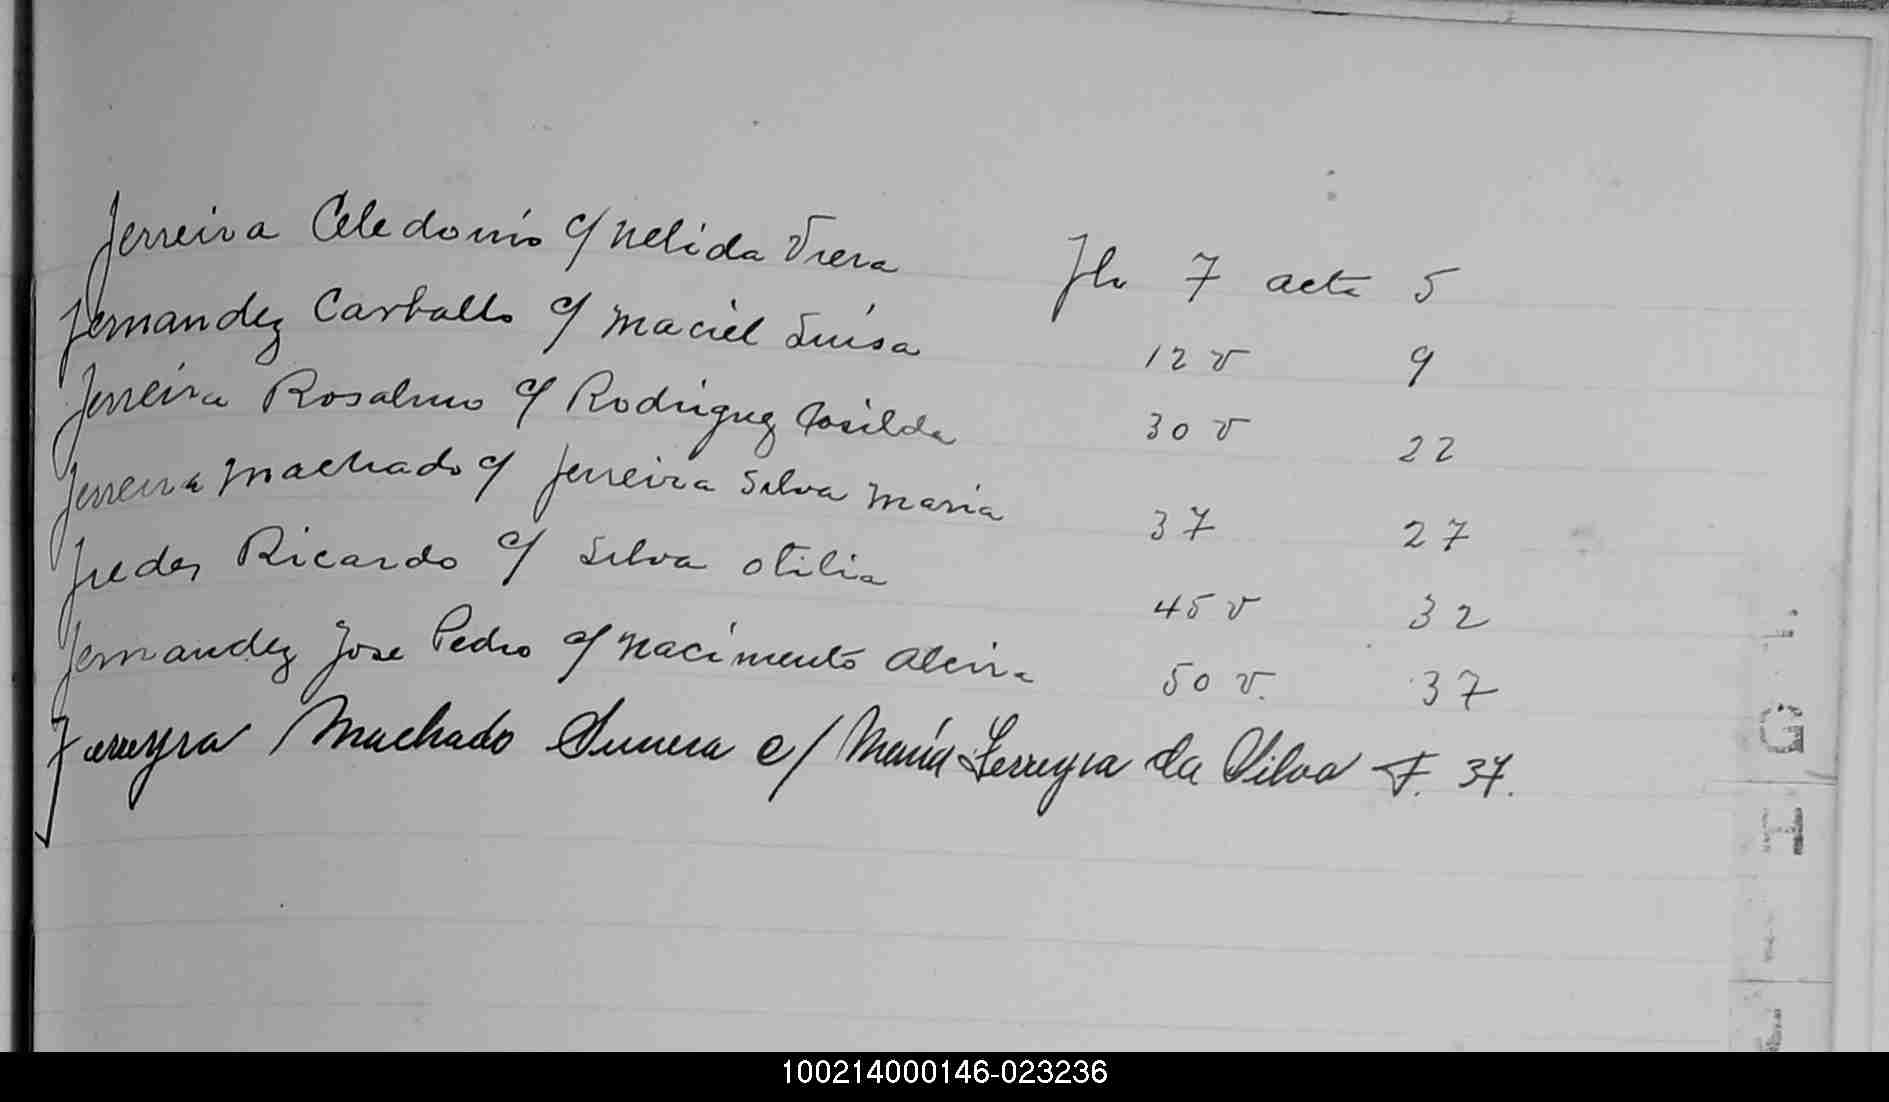 Ferreira Celedonio c/ Nelida Viera Flo 7 acta 5
Fernandez Carballo c/ Maciel Luisa 12 v 9
Ferreira Rosalino c/ Rodriguez Casilda 30 v 22
Ferreira Machado c/ Ferreira Silva Maria 37 27
Fredes Ricardo c/ Silva Otilia 45 v 32
Fernandez Jose Pedro c/ Nacimento Alcira 50 v. 37
Ferreyra Machado c/ María Ferreyra da Silva F. 37.
G
H
I
100214000146-023236